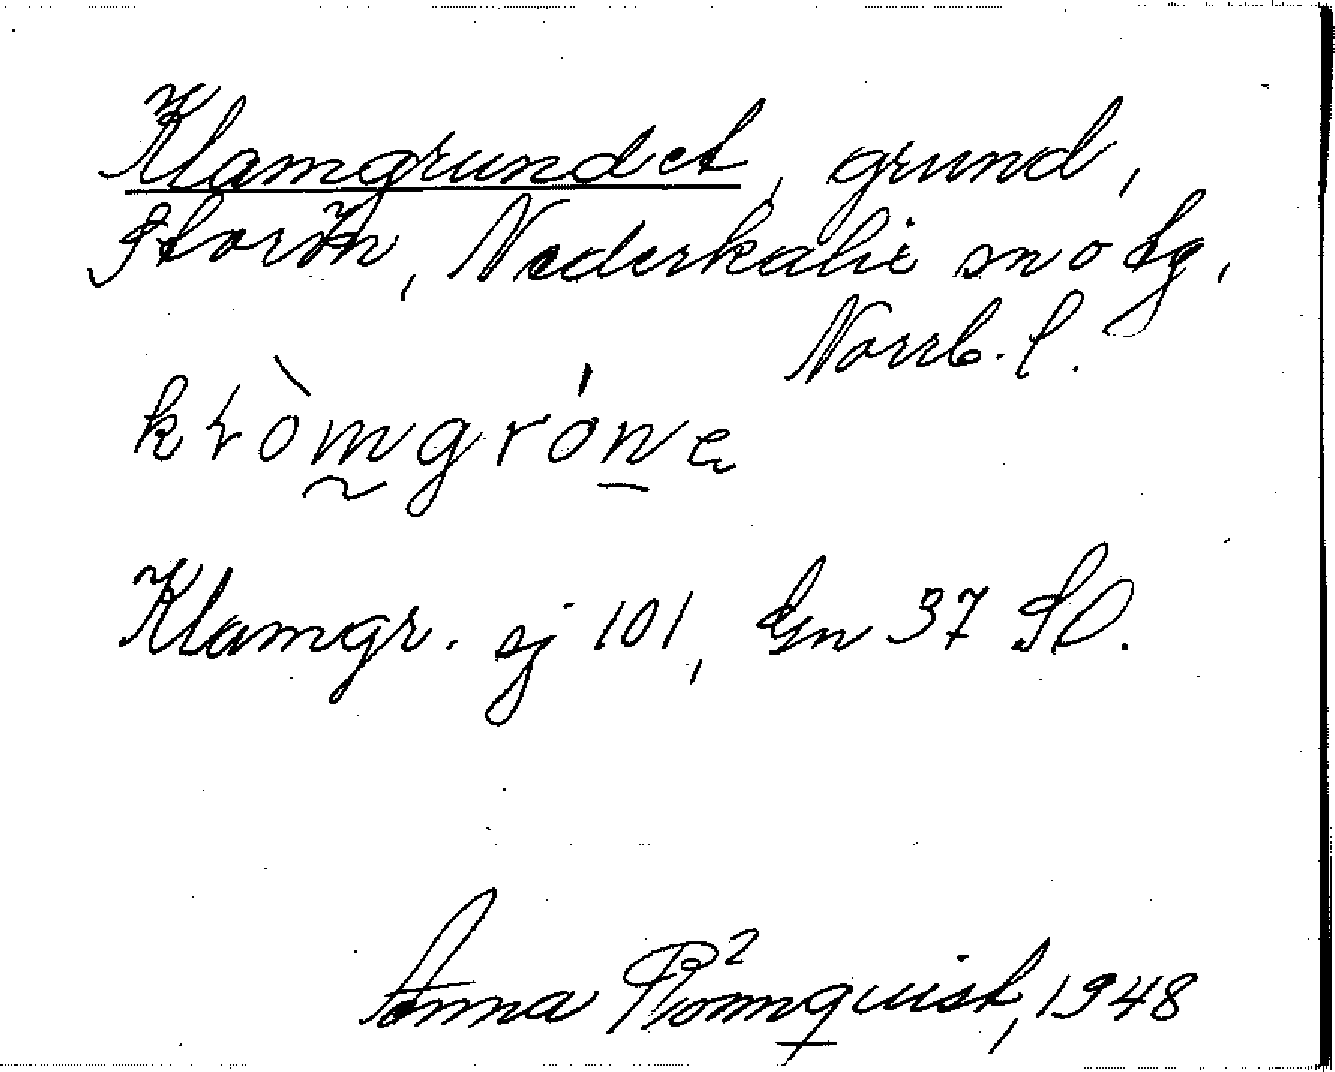 Klamgrundet, grund,
Storön, Nederkalix sn o tg,
Norrb. l.
kròmgrónе
Klamgr. ej 101, Gn 37 SO.
Anna Blomquist, 1948